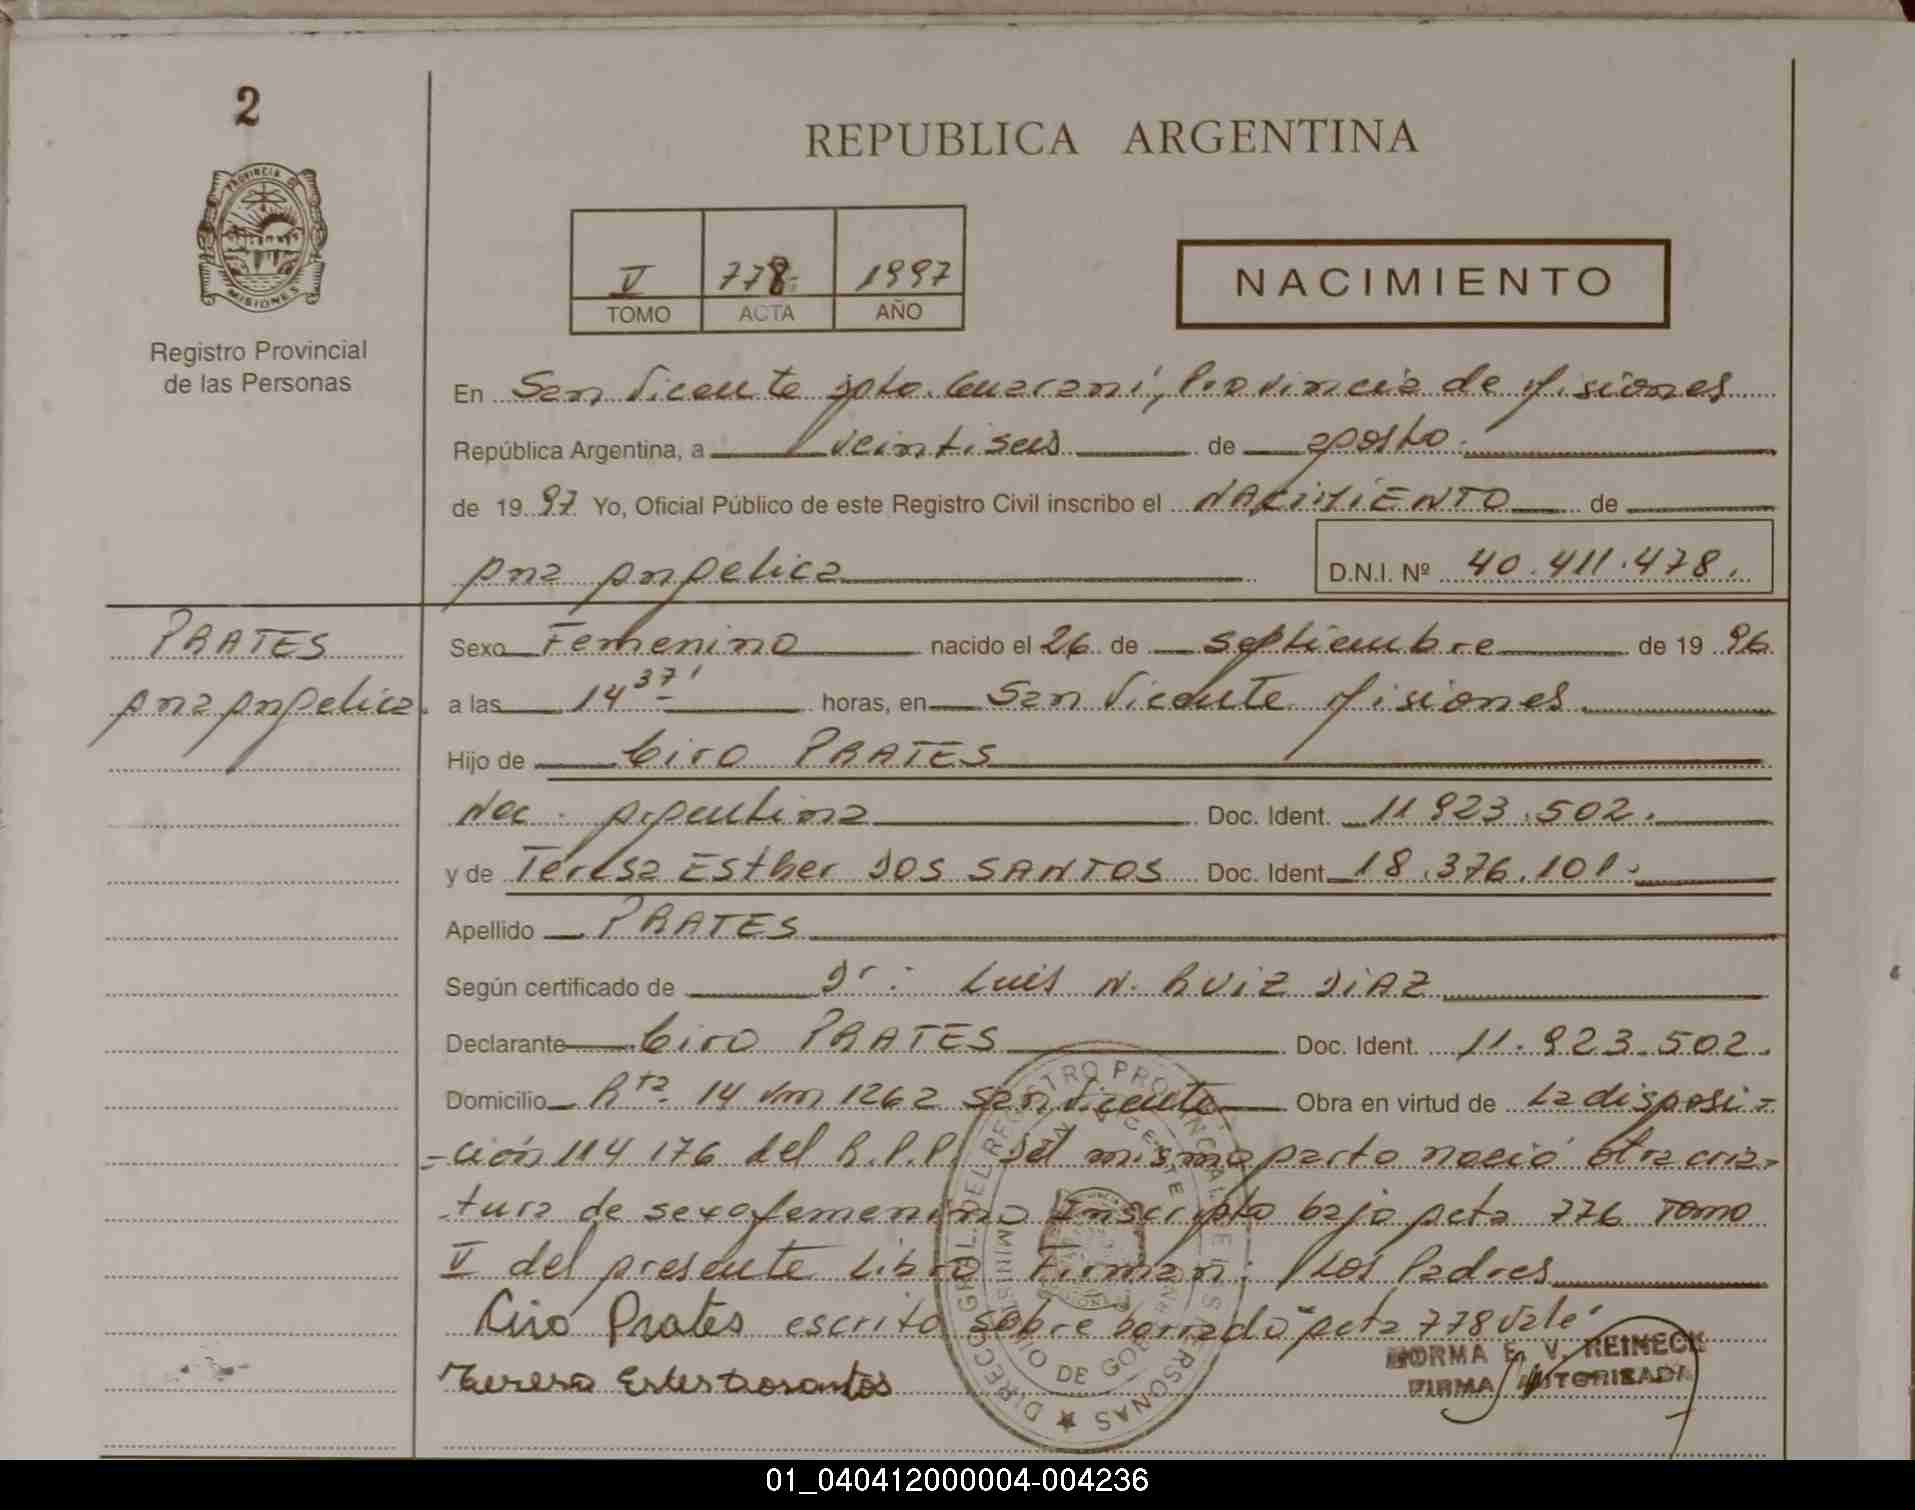 2
REPUBLICA ARGENTINA
PROVINCIA DE
MISIONES
Registro Provincial
de las Personas
V 778- 1997
TOMO ACTA AÑO
NACIMIENTO
En San Vicente Dpto. Guaraní, Provincia de Misiones
República Argentina, a veintiseis de Agosto.
de 19 97 Yo, Oficial Público de este Registro Civil inscribo el NACIMIENTO de
Ana Angelica D.N.I. Nº 40.411.478.
PRATES
Ana Angelica.
Sexo Femenino nacido el 26 de septiembre de 19 96
a las 14 37' horas, en San Vicente Misiones.
Hijo de Ciro PRATES
Nac. Argentina Doc. Ident. 11 923.502.
y de Teresa Esther DOS SANTOS Doc. Ident. 18.376.101.
Apellido PRATES
Según certificado de Dr: Luis N. RUIZ DIAZ
Declarante Ciro PRATES Doc. Ident. 11.923.502.
Domicilio Rta. 14 Km 1262 San Vicente Obra en virtud de La disposi=
=ción 114 176 del R.P.P. Del mismo parto nació otra cria-
tura de sexo femenino Inscripta bajo Acta 776 Tomo
V del presente Libro Firman: Los Padres
Ciro Prates escrito sobre borrado "Acta 778 Vale"
Teresa Ester Dosantos
NORMA E. V. REINECK
FIRMA AUTORIZADA
DIRECC. GRAL. DEL REGISTRO PROVINCIAL DE LAS PERSONAS
MINISTERIO DE GOBIERNO
SAN VICENTE
01_040412000004-004236